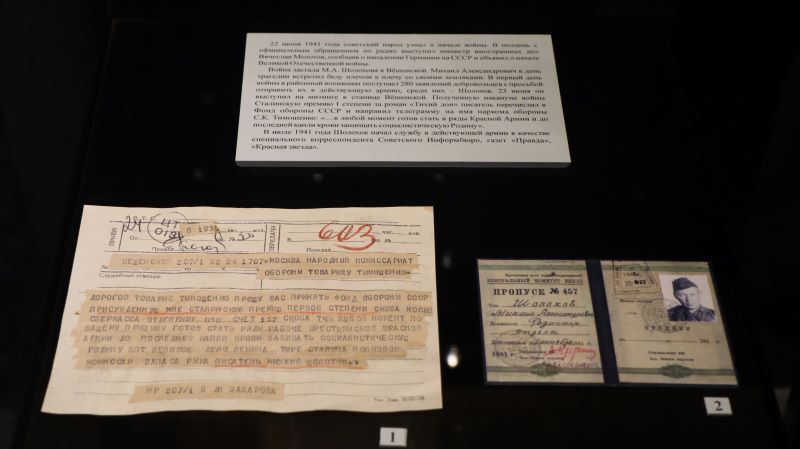 22 июня 1941 года советский народ узнал о начале войны. В полдень с
официальным обращением по радио выступил министр иностранных дел
Вячеслав Молотов, сообщив о нападении Германии на СССР и объявив о начале
Великой Отечественной войны.
Война застала М.А. Шолохова в Вёшенской. Михаил Александрович в день
трагедии встретил беду плечом к плечу со своими земляками. В первый день
войны в районный военкомат поступает 280 заявлений добровольцев с просьбой
отправить их в действующую армию, среди них – Шолохов. 23 июня он
выступил на митинге в станице Вёшенской. Полученную накануне войны
Сталинскую премию I степени за роман «Тихий дон» писатель перечислил в
Фонд обороны СССР и направил телеграмму на имя наркома обороны
С.К. Тимошенко: «…в любой момент готов стать в ряды Красной Армии и до
последней капли крови защищать социалистическую Родину».
В июле 1941 года Шолохов начал службу в действующей армии в качестве
специального корреспондента Советского Информбюро, газет «Правда»,
«Красная звезда».
603
ВЕШЕНСКОЙ 207/1 62 24 1707= МОСКВА НАРОДНЫЙ КОМИССАРИАТ
Служебные отметки: ОБОРОНЫ ТОВАРИЩУ ТИМОШЕНКО=
ДОРОГОЙ ТОВАРИЩ ТИМОШЕНКО ПРОШУ ВАС ПРИНЯТЬ ФОНД ОБОРОНЫ СССР
ПРИСУЖДЕННУЮ МНЕ СТАЛИНСКУЮ ПРЕМИЮ ПЕРВОЙ СТЕПЕНИ СКОБА
ОТДЕЛЕНИЕ СЧЕТ 152 СКОБА ТЧК ЛЮБОЙ МОМЕНТ ПО
ВАШЕМУ ПРИЗЫВУ ГОТОВ СТАТЬ РЯДЫ РАБОЧЕ КРЕСТЬЯНСКОЙ КРАСНОЙ
АРМИИ ДО ПОСЛЕДНЕЙ КАПЛИ КРОВИ ЗАЩИЩАТЬ СОЦИАЛИСТИЧЕСКУЮ
РОДИНУ ЗПТ ВЕЛИКОЕ ДЕЛО ЛЕНИНА ТИРЕ СТАЛИНА ПОЛКОВОЙ
КОМИССАР ЗАПАСА ПИСАТЕЛЬ МИХАИЛ ШОЛОХОВ
НР 207/1 ЗАХАРОВА
1
ЦЕНТРАЛЬНЫЙ КОМИТЕТ ВКП(б)
ПРОПУСК № 457
Шолохов
Михаил Александрович
1941
2